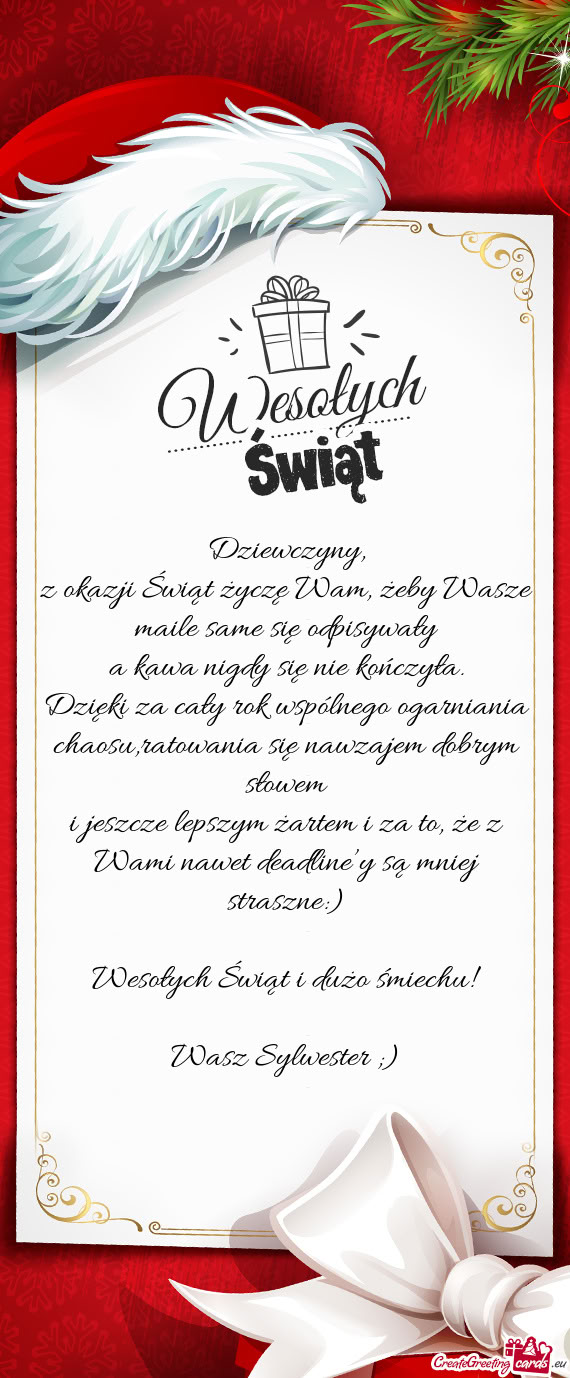 Wesołych
Świąt
Dziewczyny,
z okazji Świąt życzę Wam, żeby Wasze
maile same się odpisywały
a kawa nigdy się nie kończyła.
Dzięki za cały rok wspólnego ogarniania
chaosu,ratowania się nawzajem dobrym
słowem
i jeszcze lepszym żartem i za to, że z
Wami nawet deadline'y są mniej
straszne:)
Wesołych Świąt i dużo śmiechu!
Wasz Sylwester ;)
CreateGreeting cards.eu